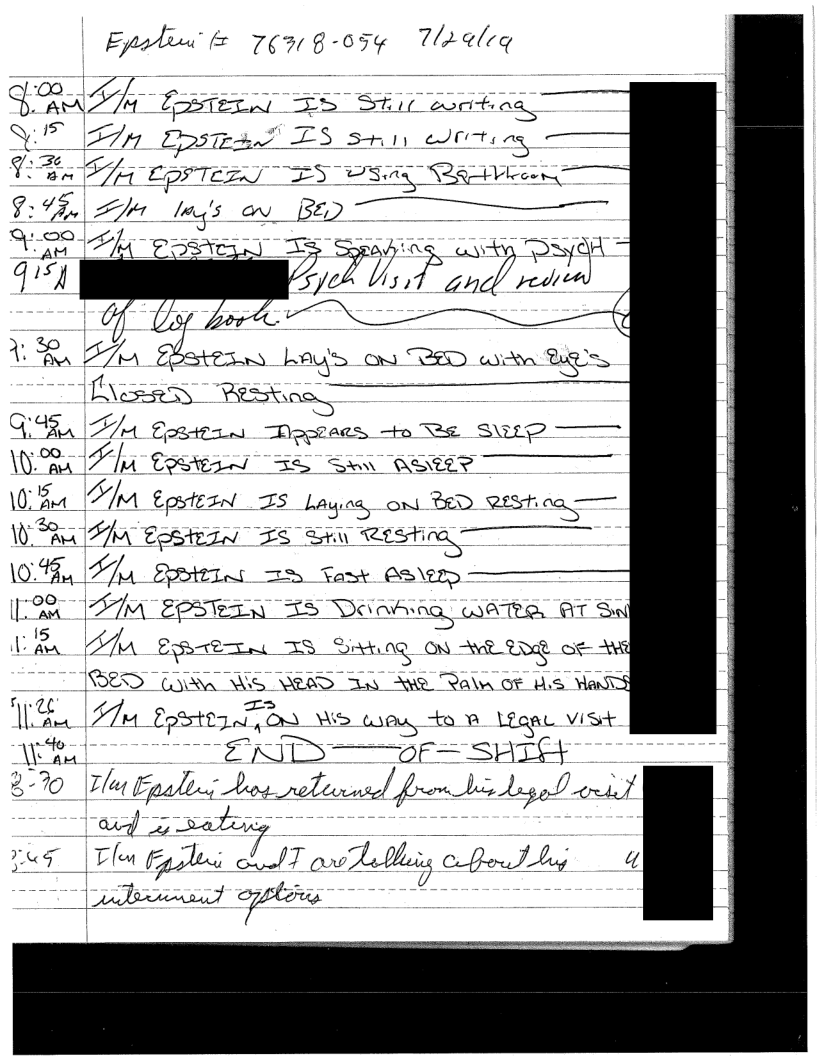 Epstein # 76318-054 7/29/19
8:00 AM I/M EPSTEIN IS Still writing
8:15 I/M EPSTEIN IS Still writing
8:30 AM I/M EPSTEIN IS Using Bathroom
8:45 AM I/M lay's on BED
9:00 AM I/M EPSTEIN IS Speaking with PSYCH
9 15 A Psych Visit and review
of log book.
9:30 AM I/M EPSTEIN LAY'S ON BED with Eye's
Closed Resting
9:45 AM I/M EPSTEIN Appears to BE SlEEP
10:00 AM I/M EPSTEIN IS Still ASlEEP
10:15 AM I/M EPSTEIN IS LAying ON BED RESting
10:30 AM I/M EPSTEIN IS Still RESting
10:45 AM I/M EPSTEIN IS Fast AslEEp
11:00 AM I/M EPSTEIN IS Drinking WATER AT SIN
11:15 AM I/M EPSTEIN IS Sitting ON the EDgE OF tHE
BED With His HEAD IN tHE PAlM OF His HANDS
11:26 AM I/M EPSTEIN IS ON His WAy to A lEGAL VISIt
11:40 AM END OF SHIft
I/m Epstein has returned from his legal visit
and is eating
I/m Epstein and I are talking about his
options